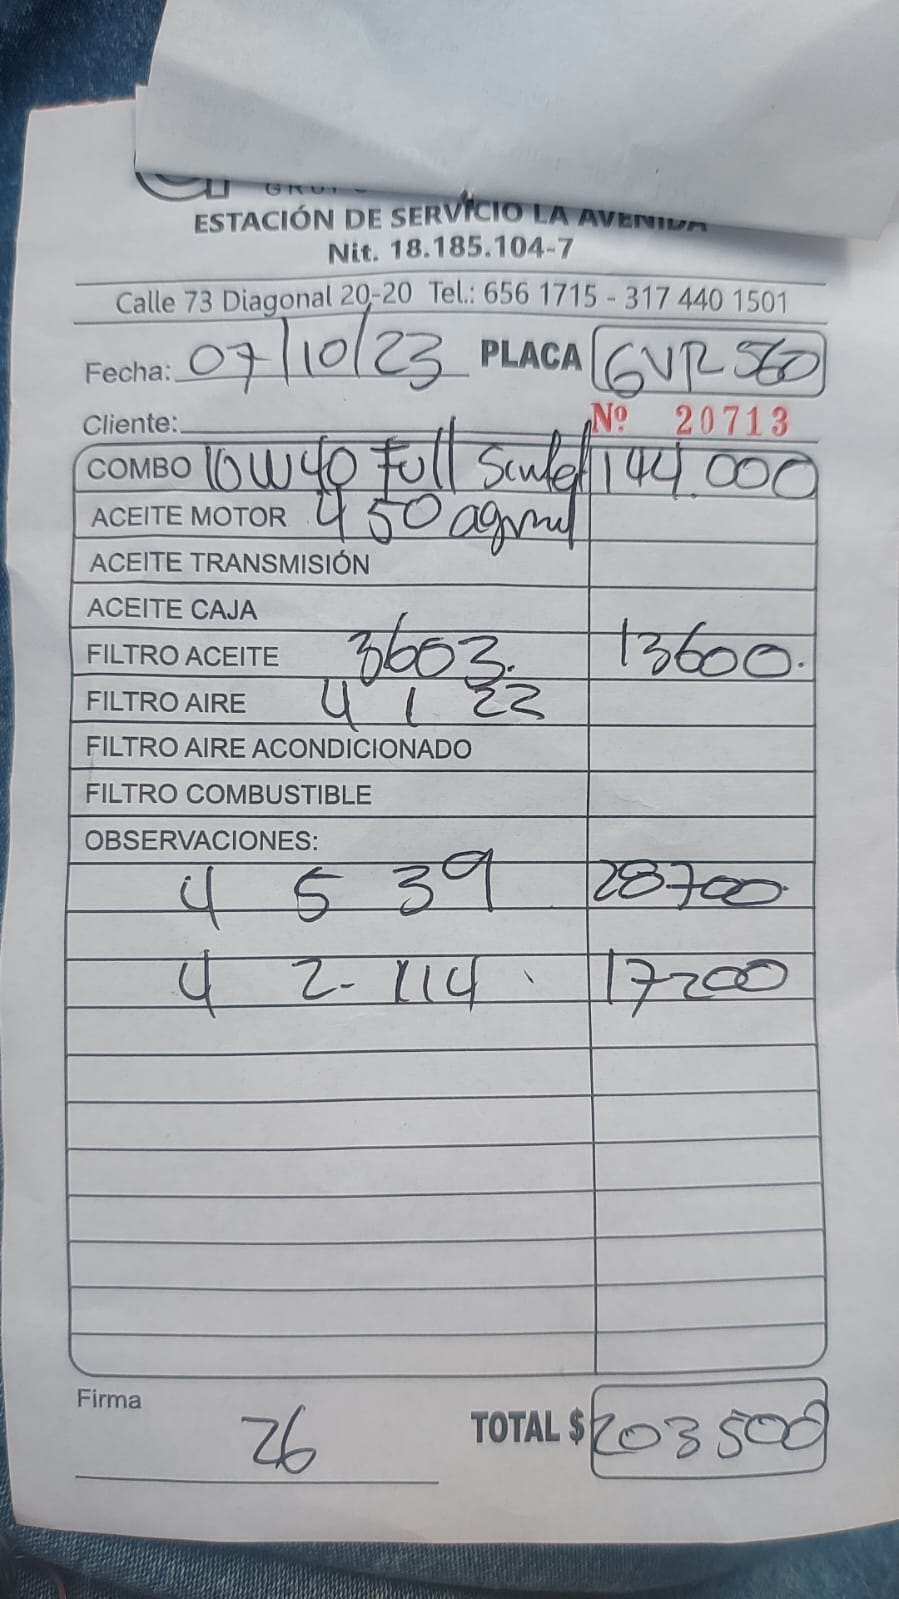 ESTACIÓN DE SERVICIO LA AVENIDA
Nit. 18.185.104-7
Calle 73 Diagonal 20-20 Tel.: 656 1715 - 317 440 1501
Fecha: 07/10/23 PLACA GVR 560
Cliente: Nº 20713
COMBO 10W40 Full 144.000
ACEITE MOTOR 4 50
ACEITE TRANSMISIÓN
ACEITE CAJA
FILTRO ACEITE 3603. 13600.
FILTRO AIRE 4 1 22
FILTRO AIRE ACONDICIONADO
FILTRO COMBUSTIBLE
OBSERVACIONES:
4 5 39 28700
4 2. 114 17200
Firma 26 TOTAL $ 203500